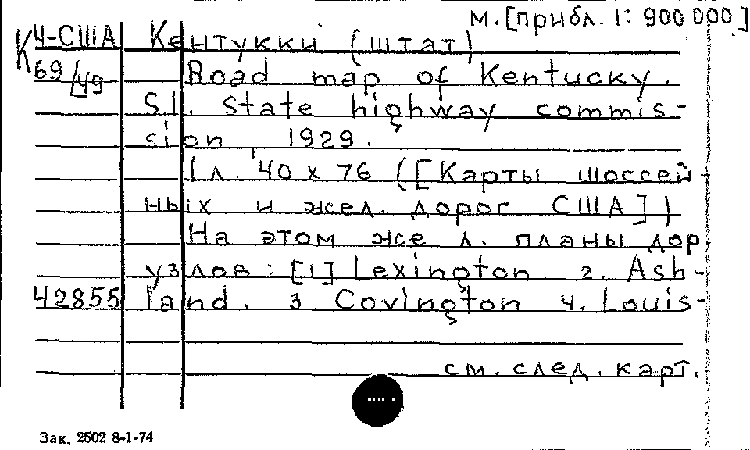 м. [прибл. 1: 900 000]
4-США Кентукки (штат)
К 69/49 Road map of Kentucky.
S.l. State highway commis-
sion, 1929.
1 л. 40 x 76 ([Карты шоссей-
ных и жел. дорог США])
На этом же л. планы дор.
узлов: [1] Lexington 2. Ash-
42855 land. 3 Covington 4. Louis-
см. след. карт.
Зак. 2502 8-1-74